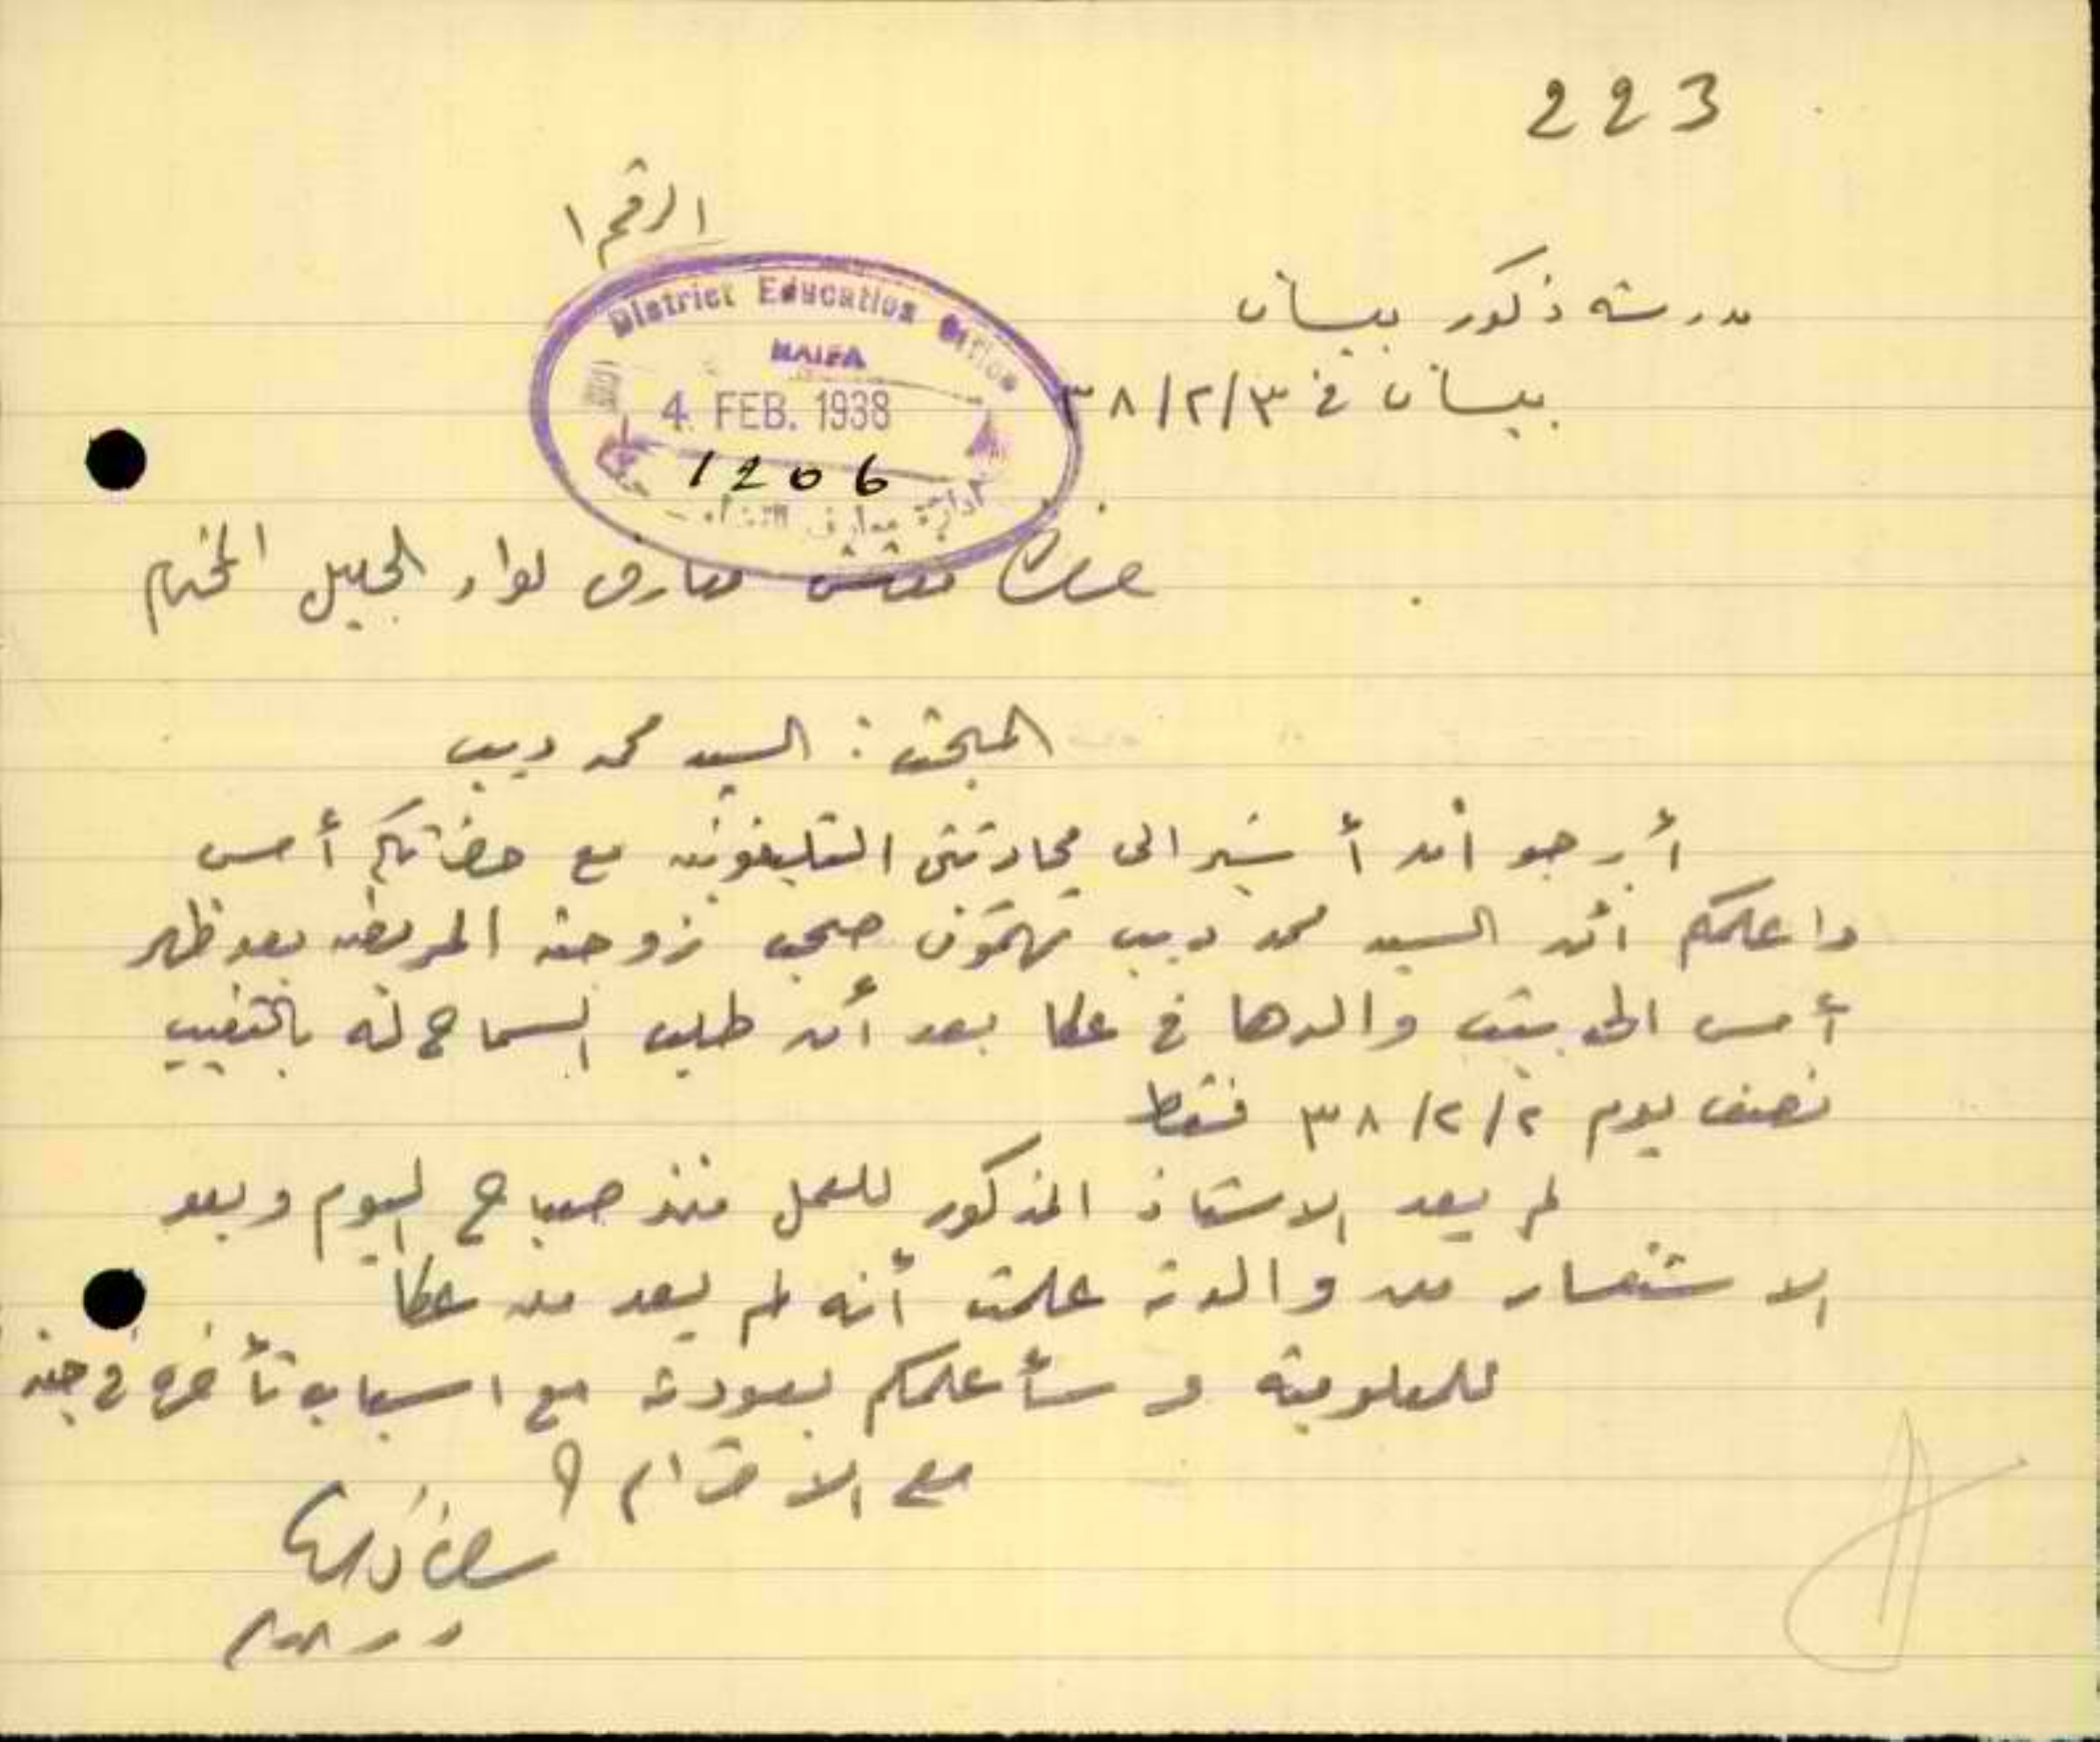 223
الرقم ١
مدرسة ذكور بيسان
بيسان في ٣٨/٢/٣
District Education Office
HAIFA
4 FEB. 1938
1206
ادارة معارف اللواء
حضرة مفتش معارف لواء الجليل المحترم
المبحث: السيد محمد ديب
أرجو أن أشير الى محادثتي التليفونية مع حضرتكم أمس
واعلمكم أن السيد محمد ديب صحب زوجته المريضة بعد ظهر
أمس الى بيت والدها في عكا بعد أن طلب السماح له بالتغيب
نصف يوم ٣٨/٢/٢ فقط
لم يعد الاستاذ المذكور للعمل منذ صباح اليوم وبعد
الاستفسار من والدته علمت أنه لم يعد من عكا
للمعلومية و سأعلمكم بعودته مع اسباب تأخره في حينه
مع الاحترام